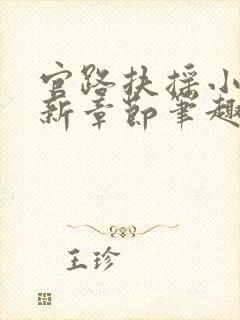 官路扶摇小
新章节笔趣
王珍